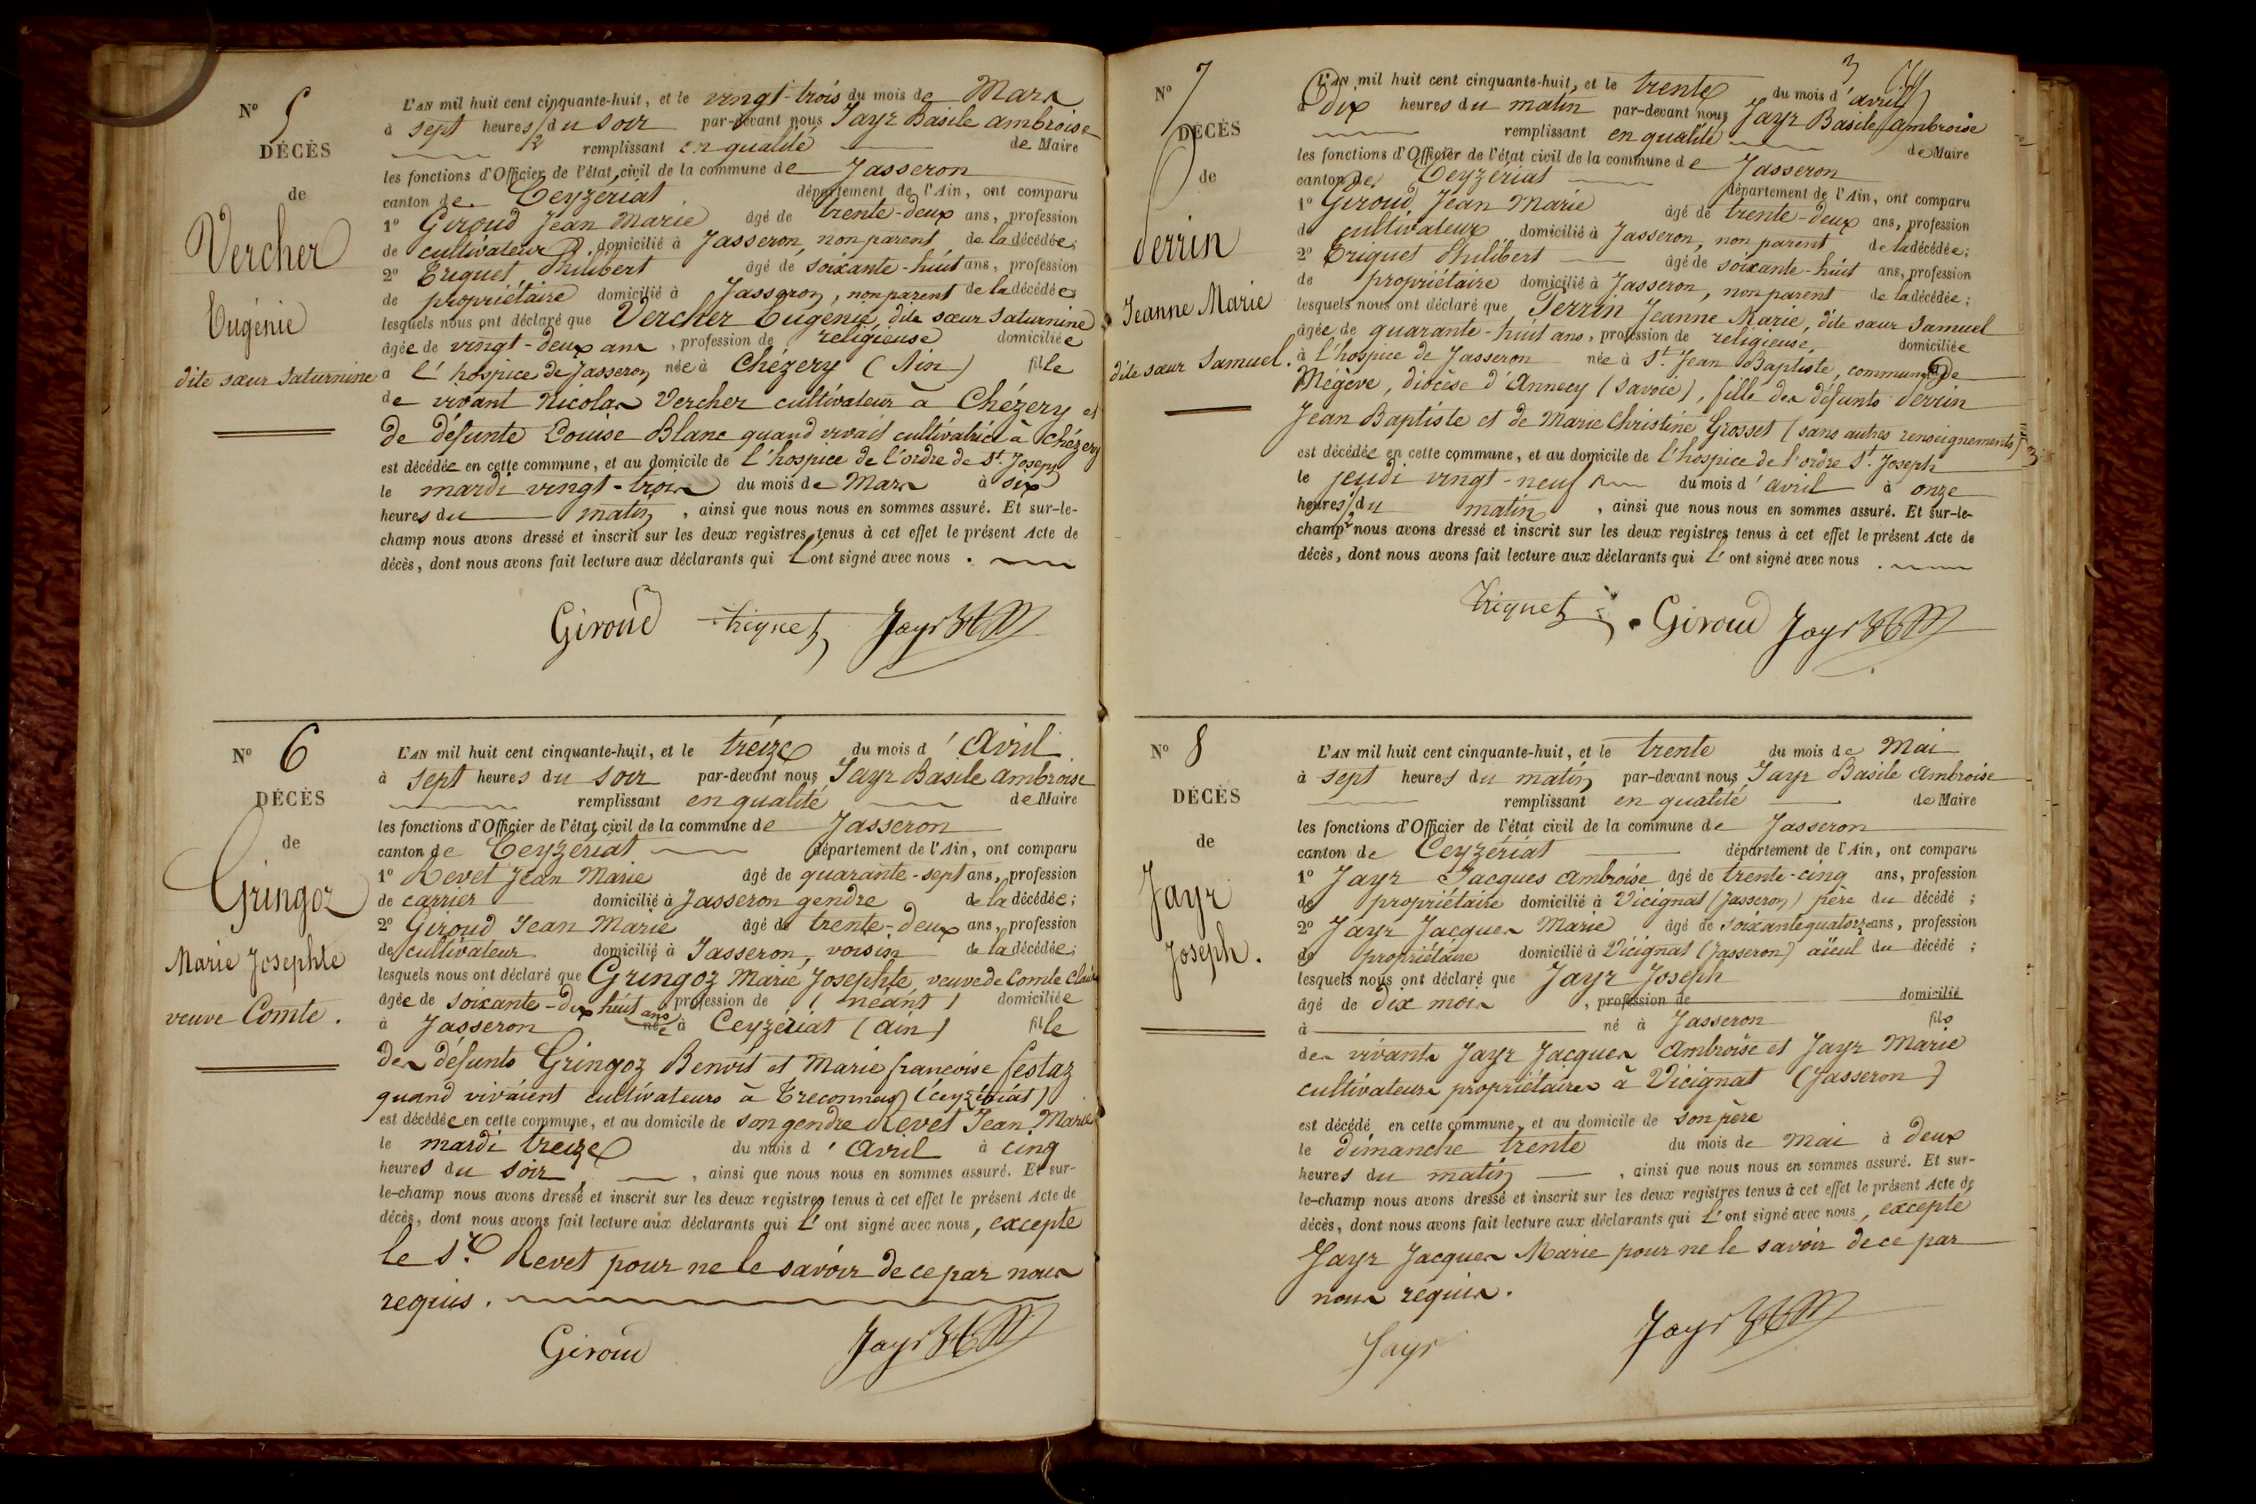 N° 5
DÉCÈS
de
Vercher
Eugénie
dite sœur Saturnine
L'AN mil huit cent cinquante-huit, et le vingt-trois du mois de Mars
à sept heures 1/2 du soir par-devant nous Jayr Basile ambroise
remplissant en qualité de Maire
les fonctions d'Officier de l'état civil de la commune de Jasseron
canton de Ceyzériat département de l'Ain, ont comparu
1° Giroud Jean Marie âgé de trente-deux ans, profession
de cultivateur domicilié à Jasseron, non parent de la décédée;
2° Triquet Philibert âgé de soixante-huit ans, profession
de propriétaire domicilié à Jasseron, non parent de la décédée
lesquels nous ont déclaré que Vercher Eugénie, dite sœur Saturnine
âgée de vingt-deux ans, profession de religieuse domiciliée
à l'hospice de Jasseron née à Chézery (Ain) fille
de vivant Nicolas Vercher cultivateur à Chézery et
de défunte Louise Blanc quand vivait cultivatrice à Chézery
est décédée en cette commune, et au domicile de l'hospice de l'ordre de St. Joseph
le mardi vingt-trois du mois de Mars à dix
heures du matin, ainsi que nous nous en sommes assuré. Et sur-le-
champ nous avons dressé et inscrit sur les deux registres tenus à cet effet le présent Acte de
décès, dont nous avons fait lecture aux déclarants qui l'ont signé avec nous.
Giroud triquet Jayr
N° 6
DÉCÈS
de
Gringoz
Marie Josephte
veuve Comte.
L'AN mil huit cent cinquante-huit, et le treize du mois d'Avril
à sept heures du soir par-devant nous Jayr Basile ambroise
remplissant en qualité de Maire
les fonctions d'Officier de l'état civil de la commune de Jasseron
canton de Ceyzériat département de l'Ain, ont comparu
1° Revet Jean Marie âgé de quarante-sept ans, profession
de carrier domicilié à Jasseron gendre de la décédée;
2° Giroud Jean Marie âgé de trente-deux ans, profession
de cultivateur domicilié à Jasseron, voisin de la décédée;
lesquels nous ont déclaré que Gringoz Marie Josephte, veuve de Comte Claude
âgée de soixante-dix huit ans profession de (néant) domiciliée
à Jasseron née à Ceyzériat (ain) fille
des défunts Gringoz Benoit et Marie françoise festaz
quand vivaient cultivateurs à Treconnas (Ceyzériat)
est décédée en cette commune, et au domicile de son gendre Revet Jean Marie
le mardi treize du mois d'avril à cinq
heures du soir, ainsi que nous nous en sommes assuré. Et sur-
le-champ nous avons dressé et inscrit sur les deux registres tenus à cet effet le présent Acte de
décès, dont nous avons fait lecture aux déclarants qui l'ont signé avec nous, excepté
le Sr. Revet pour ne le savoir de ce par nous
requis.
Giroud Jayr
3
N° 7
DÉCÈS
de
Perrin
Jeanne Marie
dite sœur Samuel.
L'AN mil huit cent cinquante-huit, et le trente du mois d'avril
à dix heures du matin par-devant nous Jayr Basile ambroise
remplissant en qualité de Maire
les fonctions d'Officier de l'état civil de la commune de Jasseron
canton de Ceyzériat département de l'Ain, ont comparu
1° Giroud Jean Marie âgé de trente-deux ans, profession
de cultivateur domicilié à Jasseron, non parent de la décédée;
2° Triquet Philibert âgé de soixante-huit ans, profession
de propriétaire domicilié à Jasseron, non parent de la décédée;
lesquels nous ont déclaré que Perrin Jeanne Marie, dite sœur Samuel
âgée de quarante-huit ans, profession de religieuse domiciliée
à l'hospice de Jasseron née à St. Jean Baptiste, commune de
Mégève, diocèse d'Annecy (Savoie), fille des défunts Perrin
Jean Baptiste et de Marie Christine Grosset (sans autres renseignements)
est décédée en cette commune, et au domicile de l'hospice de l'ordre St. Joseph
le jeudi vingt-neuf du mois d'avril à onze
heures 1/2 du matin, ainsi que nous nous en sommes assuré. Et sur-le-
champ nous avons dressé et inscrit sur les deux registres tenus à cet effet le présent Acte de
décès, dont nous avons fait lecture aux déclarants qui l'ont signé avec nous.
triquet Giroud Jayr
N° 8
DÉCÈS
de
Jayr
Joseph.
L'AN mil huit cent cinquante-huit, et le trente du mois de Mai
à sept heures du matin par-devant nous Jayr Basile ambroise
remplissant en qualité de Maire
les fonctions d'Officier de l'état civil de la commune de Jasseron
canton de Ceyzériat département de l'Ain, ont comparu
1° Jayr Jacques ambroise âgé de trente-cinq ans, profession
de propriétaire domicilié à Vicignat (Jasseron) père du décédé;
2° Jayr Jacques Marie âgé de soixante quatorze ans, profession
de propriétaire domicilié à Vicignat (Jasseron) aïeul du décédé;
lesquels nous ont déclaré que Jayr Joseph
âgé de dix mois, profession de domicilié
à né à Jasseron fils
des vivants Jayr Jacques Ambroise et Jayr Marie
cultivateurs propriétaires à Vicignat (Jasseron)
est décédé en cette commune, et au domicile de son père
le dimanche trente du mois de Mai à deux
heures du matin, ainsi que nous nous en sommes assuré. Et sur-
le-champ nous avons dressé et inscrit sur les deux registres tenus à cet effet le présent Acte de
décès, dont nous avons fait lecture aux déclarants qui l'ont signé avec nous, excepté
Jayr Jacques Marie pour ne le savoir de ce par
nous réquis.
Jayr Jayr